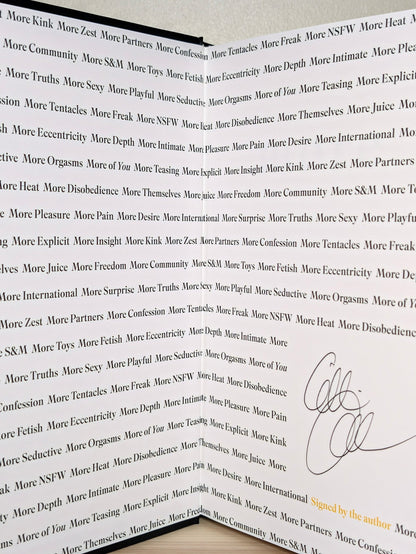 More Kink More Zest More Partners More Confession More Tentacles More Freak More NSFW More Heat More
More Community More S&M More Toys More Fetish More Eccentricity More Depth More Intimate More Plea
More Truths More Sexy More Playful More Seductive More Orgasms More of You More Teasing More Explicit
ession More Tentacles More Freak More NSFW More Heat More Disobedience More Themselves More Juice More
sh More Eccentricity More Depth More Intimate More Pleasure More Pain More Desire More International Mo
ctive More Orgasms More of You More Teasing More Explicit More Insight More Kink More Zest More Partners
More Heat More Disobedience More Themselves More Juice More Freedom More Community More S&M More To
More Pleasure More Pain More Desire More International More Surprise More Truths More Sexy More Playfu
ng More Explicit More Insight More Kink More Zest More Partners More Confession More Tentacles More Freak
elves More Juice More Freedom More Community More S&M More Toys More Fetish More Eccentricity More De
More International More Surprise More Truths More Sexy More Playful More Seductive More Orgasms More of Yo
More Zest More Partners More Confession More Tentacles More Freak More NSFW More Heat More Disobedience
e S&M More Toys More Fetish More Eccentricity More Depth More Intimate More
More Truths More Sexy More Playful More Seductive More Orgasms More of You
Confession More Tentacles More Freak More NSFW More Heat More Disobedience
ore Fetish More Eccentricity More Depth More Intimate More Pleasure More Pain
More Seductive More Orgasms More of You More Teasing More Explicit More Kink
ak More NSFW More Heat More Disobedience More Themselves More Juice More
y More Depth More Intimate More Pleasure More Pain More Desire More International Signed by the author More
sms More of You More Teasing More Explicit More Insight More Kink More Zest More Partners More Confession
More Themselves More Juice More Freedom More Community More S&M More